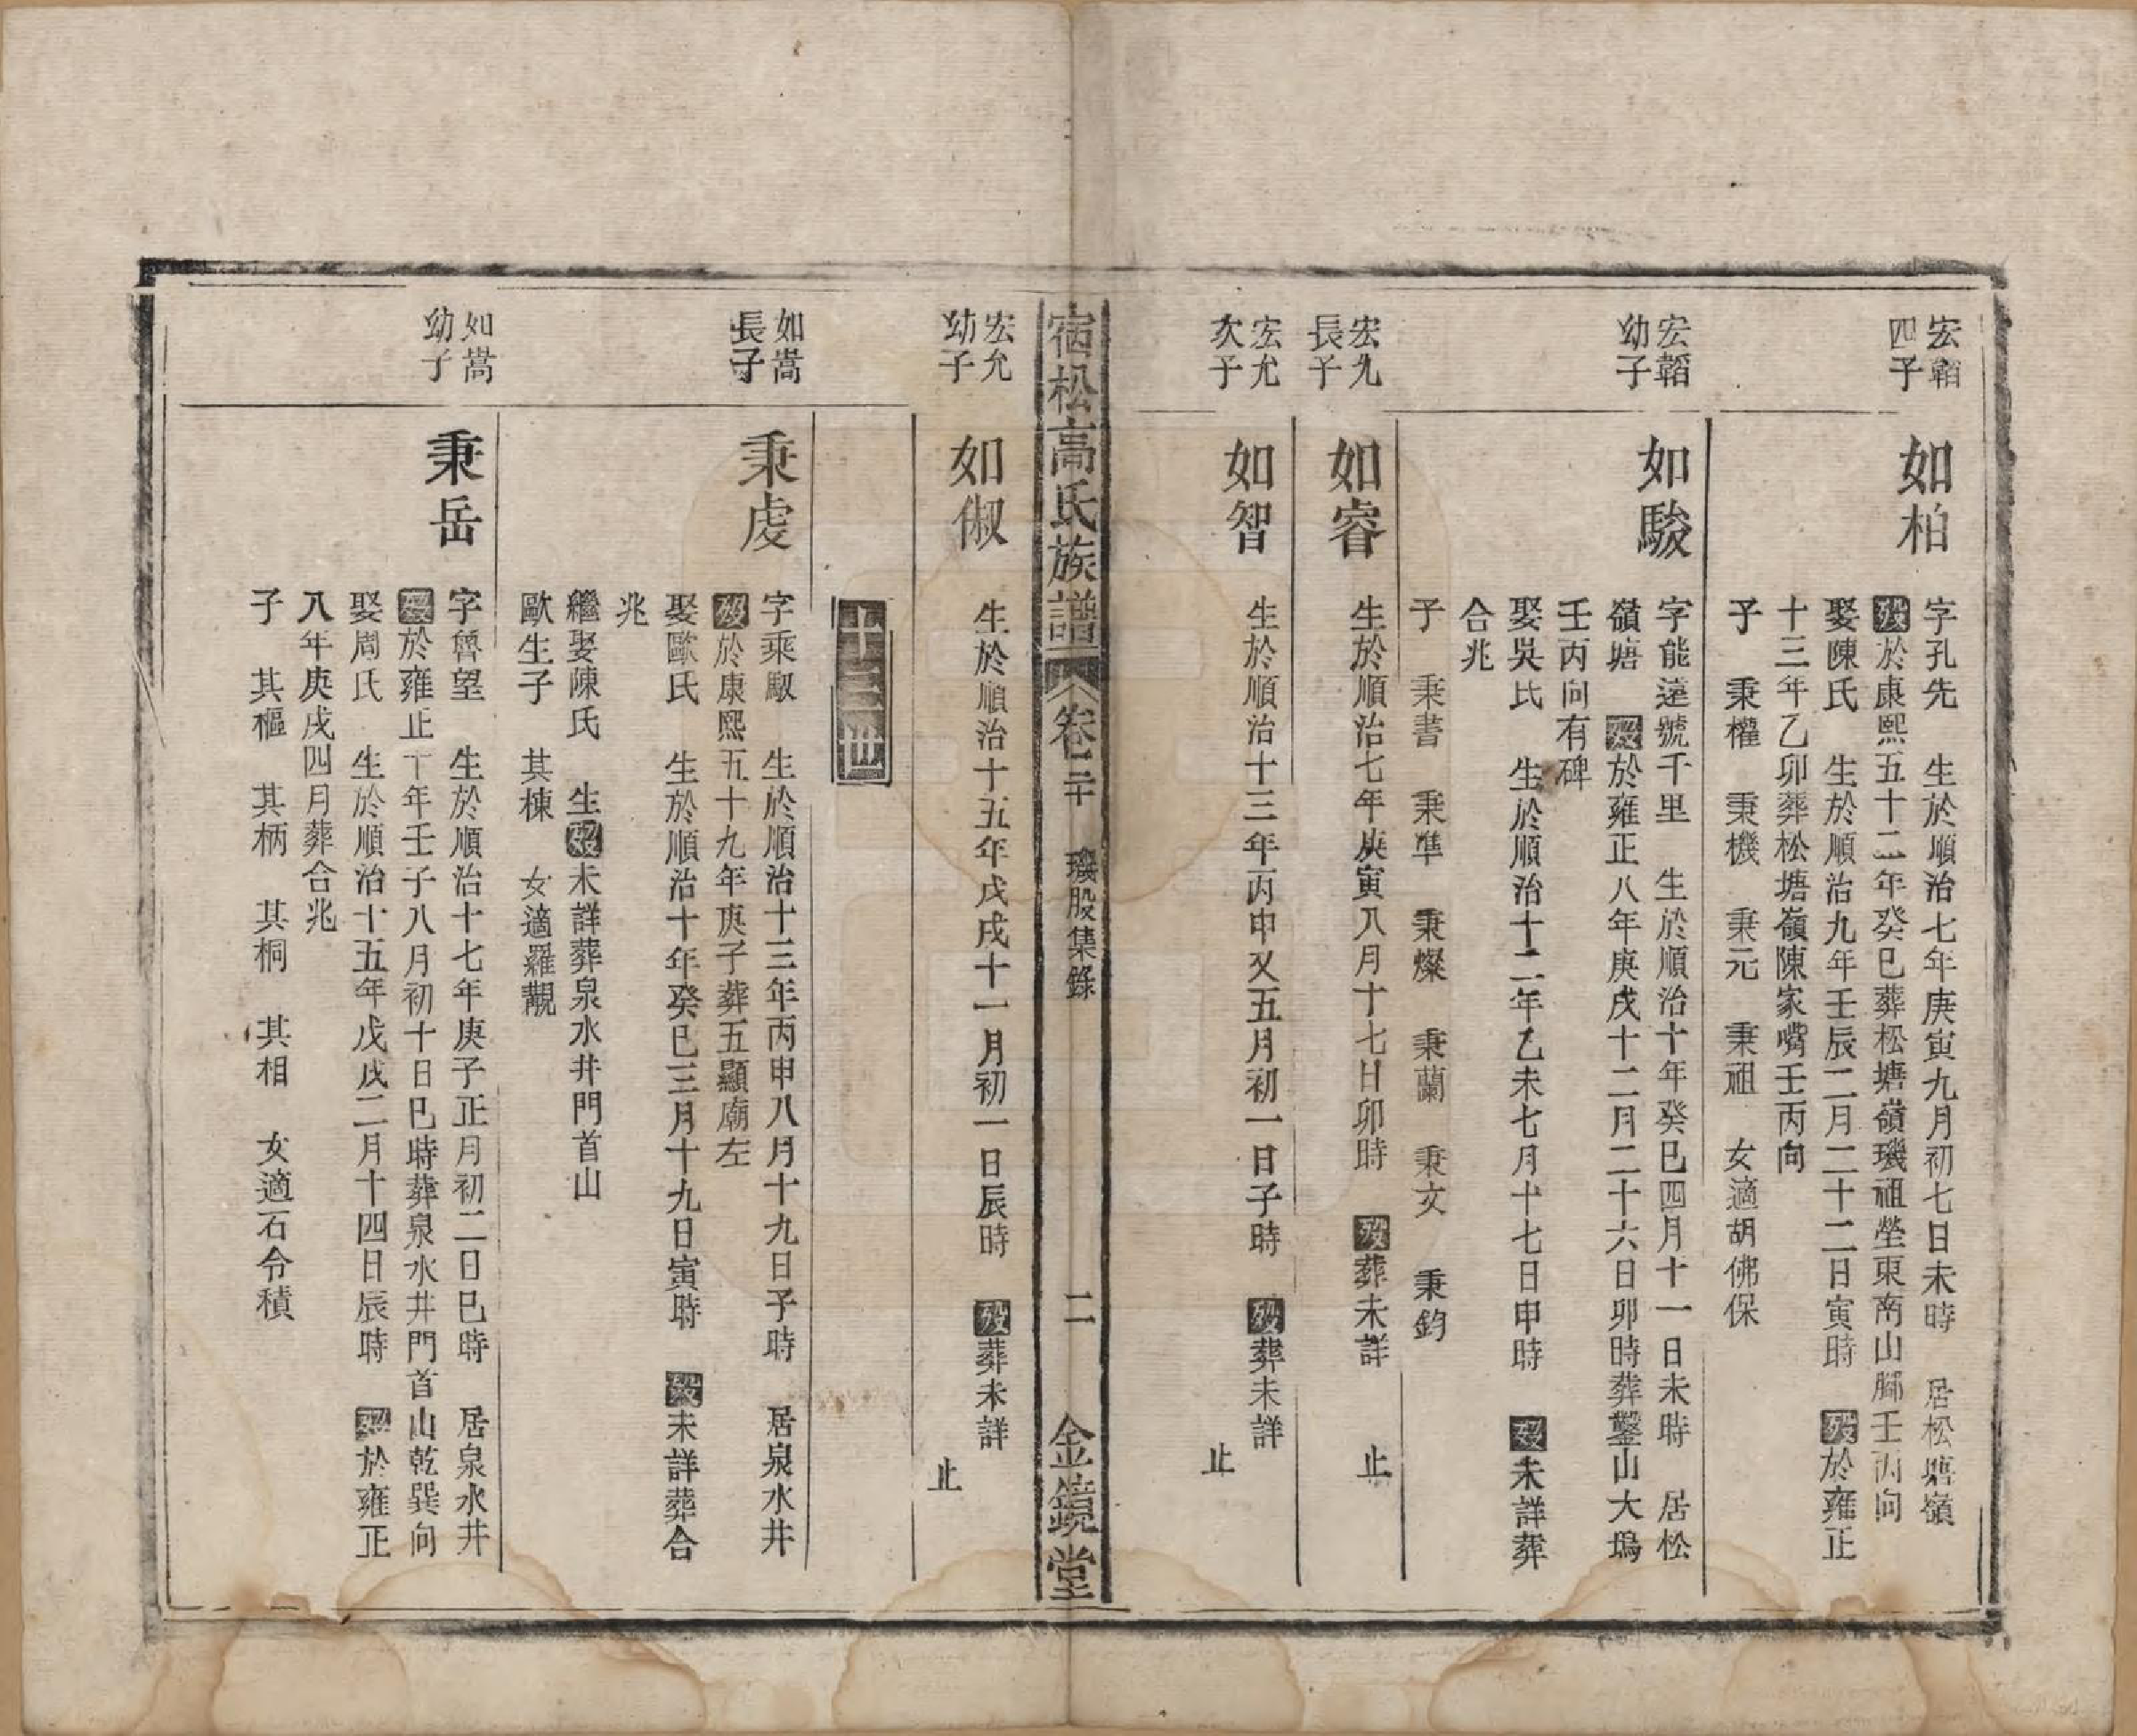 宏韜
四子
如柏
字孔先　生於順治七年庚寅九月初七日未時　居松塘嶺
歿於康熙五十二年癸巳葬松塘嶺璣祖塋東南山腳壬丙向
娶陳氏　生於順治九年壬辰二月二十二日寅時　歿於雍正
十三年乙卯葬松塘嶺陳家嘴壬丙向
子　秉權　秉機　秉元　秉祖　女適胡佛保
宏韜
幼子
如駿
字能遠號千里　生於順治十年癸巳四月十一日未時　居松
嶺塘　歿於雍正八年庚戌十二月二十六日卯時葬鑿山大塢
壬丙向有碑
娶吳氏　生於順治十二年乙未七月十七日申時　歿未詳葬
合兆
子　秉書　秉準　秉燦　秉蘭　秉文　秉鈞
宏允
長子
如睿
生於順治七年庚寅八月十七日卯時　歿葬未詳　止
宏允
次子
如智
生於順治十三年丙申又五月初一日子時　歿葬未詳
止
宿松高氏族譜　卷二十　璣股集錄　二　金鏡堂
宏允
幼子
如俶
生於順治十五年戊戌十一月初一日辰時　歿葬未詳
止
十三世
如嵩
長子
秉虔
字乘馭　生於順治十三年丙申八月十九日子時　居泉水井
歿於康熙五十九年庚子葬五顯廟左
娶歐氏　生於順治十年癸巳三月十九日寅時　歿未詳葬合
兆
繼娶陳氏　生歿未詳葬泉水井門首山
歐生子　其棟　女適羅觀
如嵩
幼子
秉岳
字魯望　生於順治十七年庚子正月初二日巳時　居泉水井
歿於雍正十年壬子八月初十日巳時葬泉水井門首山乾巽向
娶周氏　生於順治十五年戊戌二月十四日辰時　歿於雍正
八年庚戌四月葬合兆
子　其樞　其柄　其桐　其相　女適石令積